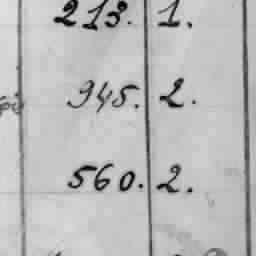 213. 1.
945. 2.
560. 2.